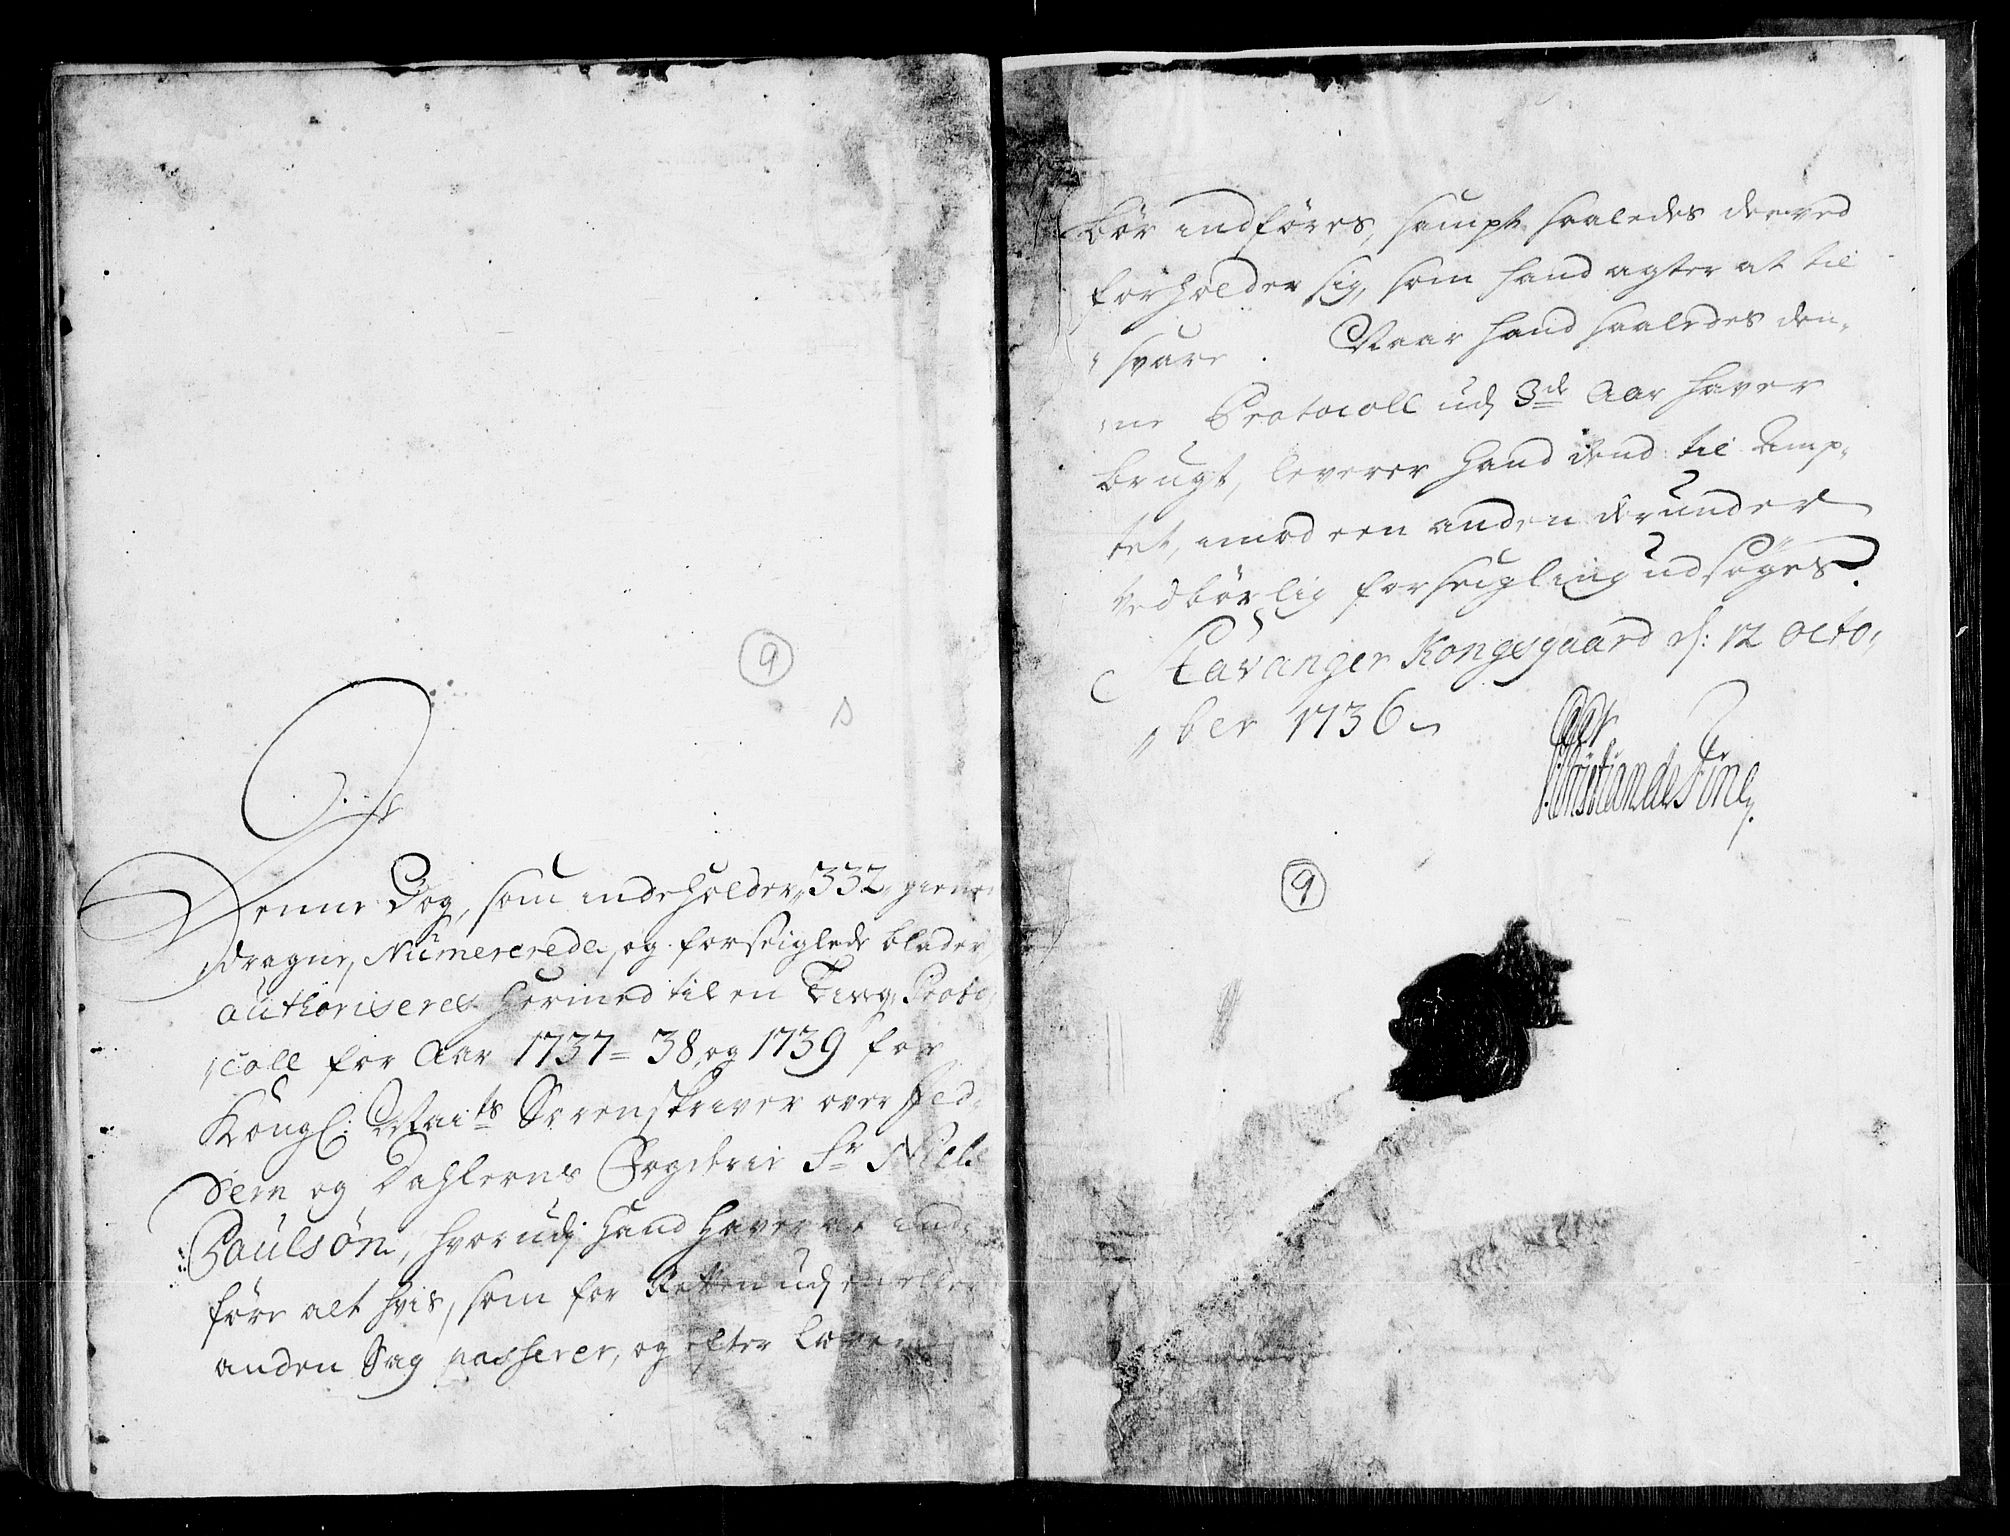 9
Denne Bog, som indeholder 332 gienem
dragne, Numererede, og forseiglede blader,
authoriseres hermed til en Ting Proto,
,coll for Aar 1737 = 38, og 1739 for
Kongl: Maits Sorenskriver over Jed-
deren og Dahlerns Fogderie Sr Niels
Paulsøn, hvorudj hand haver at ind,
føre alt hvis, som for Retten udj en eller
anden Sag passerer, og efter Loven
bør indføres, sampt saaledes derved
forholder sig, som hand agter at til
,svare. Naar hand saaledes den,
,ne Protocoll udj 3de Aar haver
brugt, leverer hand dend til Amp,
tet, imod een anden derunder
vedbørlig forseigling udsøges.
Stavanger Kongsgaard d: 12 Octo,
,,ber 1736
Christian de Fine.
9